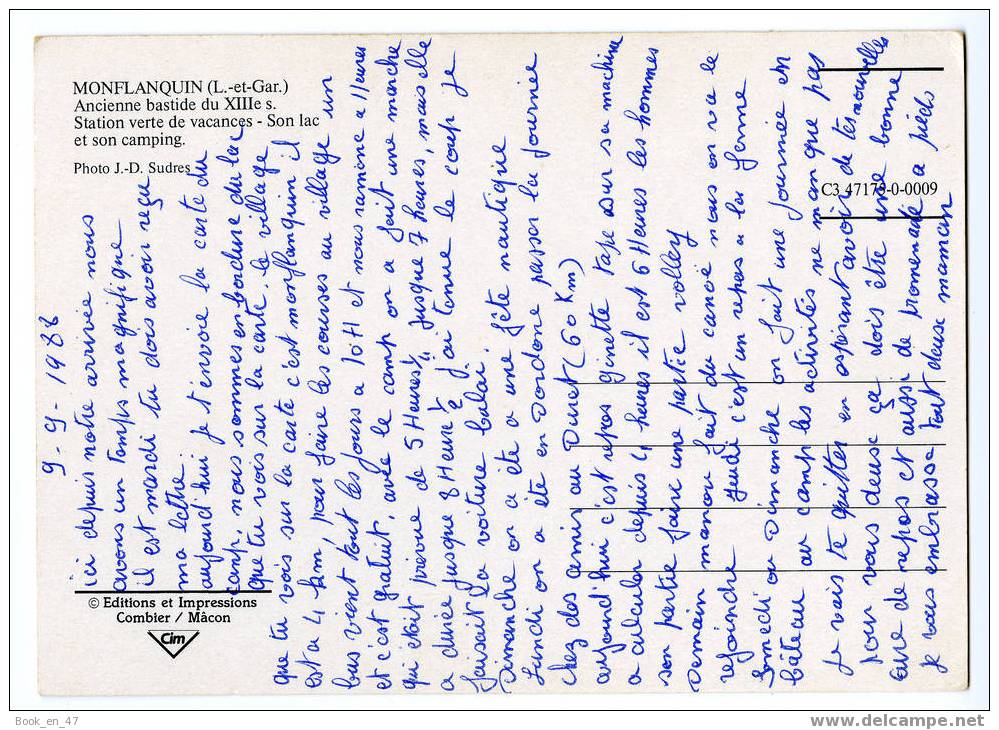 MONFLANQUIN (L.-et-Gar.)
Ancienne bastide du XIIIe s.
Station verte de vacances - Son lac
et son camping.
Photo J.-D. Sudres
C3 47175-0-0009
© Editions et Impressions
Combier / Mâcon
Cim
9-9-1988
ici depuis notre arrivée nous
avons un temps magnifique
il est mardi tu dois avoir reçue
ma lettre
aujourd'hui je t'envoie la carte du
camp, nous sommes en bordure du lac
que tu vois sur la carte. le village
que tu vois sur la carte c'est monflanquin il
est a 4 km, pour faire les courses au village un
bus vient tout les jours a 10H et nous ramène a 11 eures
et c'est gratuit, avec le camp on a fait une marche
qui était prévue de 5 Heures jusque 7 heures, mais elle
a duré jusque 8 Heure ½ j'ai tenue le coup je
faisait la voiture balai.
Dimanche on a été a une fête nautique
Lundi on a été en Dordone passer la journée
chez des amis au (60 Km)
aujourd'hui c'est repos ginette tape sur sa machine
a calculer depuis 4 heures il est 6 Heures les hommes
son partie faire une partie volley
Demain manou fait du canoë nous on va le
rejoindre jeudi c'est un repas a la ferme
Samedi ou Dimanche on fait une journée en
bâteau au camp les activités ne manque pas
je vais te quitter en espérant avoir de tes nouvelles
pour vous deux ça dois être une bonne
cure de repos et aussi de promenade a pieds
je vous embrasse tout deux maman
Book_en_47
www.delcampe.net